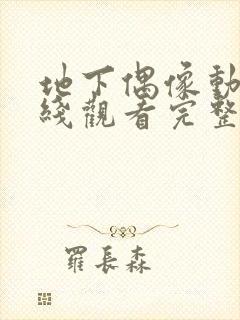 地下偶像動
綫觀看完整
羅長森